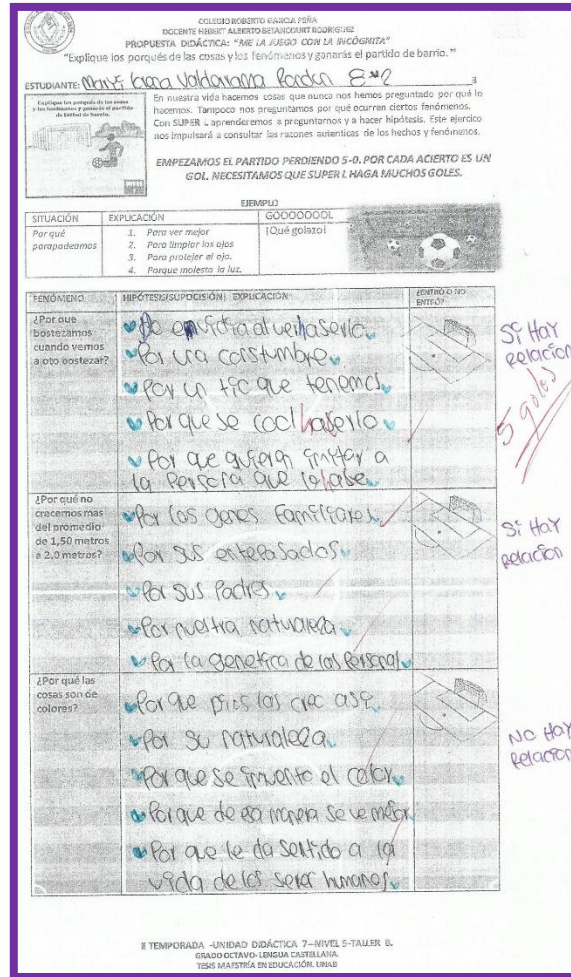 COLEGIO ROBERTO GARCIA PEÑA
DOCENTE HEBERT ALBERTO BETANCOURT RODRIGUEZ
PROPUESTA DIDÁCTICA: "ME LA JUEGO CON LA INCÓGNITA"
"Explique los porqués de las cosas y los fenómenos y ganarás el partido de barrio."
ESTUDIANTE: Valderrama 8#2 3
Explique los porqués de las cosas
y los fenómenos y ganarás el partido
de fútbol de barrio.
En nuestra vida hacemos cosas que nunca nos hemos preguntado por qué lo
hacemos. Tampoco nos preguntamos por qué ocurren ciertos fenómenos.
Con SUPER L aprenderemos a preguntarnos y a hacer hipótesis. Este ejercico
nos impulsará a consultar las razones autenticas de los hechos y fenómenos.
EMPEZAMOS EL PARTIDO PERDIENDO 5-0. POR CADA ACIERTO ES UN
GOL. NECESITAMOS QUE SUPER L HAGA MUCHOS GOLES.
EJEMPLO
SITUACIÓN EXPLICACIÓN GOOOOOOOL
Por qué
parapadeamos
1. Para ver mejor
2. Para limpiar los ojos
3. Para protejer el ojo.
4. Porque molesta la luz.
¡Qué golazo!
FENÓMENO HIPÓTESIS(SUPOCISIÓN) EXPLICACIÓN ¿ENTRÓ O NO
ENTRÓ?
¿Por que
bostezamos
cuando vemos
a oto bostezar?
De envidia al ver haserlo
Por una costumbre
Por un tic que tenemos
Por que se haserlo
Por que quieren imitar a
la Persona que lo hase
Si Hay
Relacion
5 goles
¿Por qué no
crecemos mas
del promedio
de 1,50 metros
a 2.0 metros?
Por los genes Familiares
Por sus antepasados
Por sus Padres
Por nuestra naturaleza
Por la genetica de las Personas
Si Hay
Relacion
¿Por qué las
cosas son de
colores?
Por que Dios las creo asi
Por su naturaleza
Por que se invento el color
Porque de esa manera se ve mejor
Por que le da sentido a la
vida de los seres humanos
No Hay
Relacion
II TEMPORADA -UNIDAD DIDÁCTICA 7–NIVEL 5-TALLER B.
GRADO OCTAVO- LENGUA CASTELLANA.
TESIS MAESTRÍA EN EDUCACIÓN. UNAB